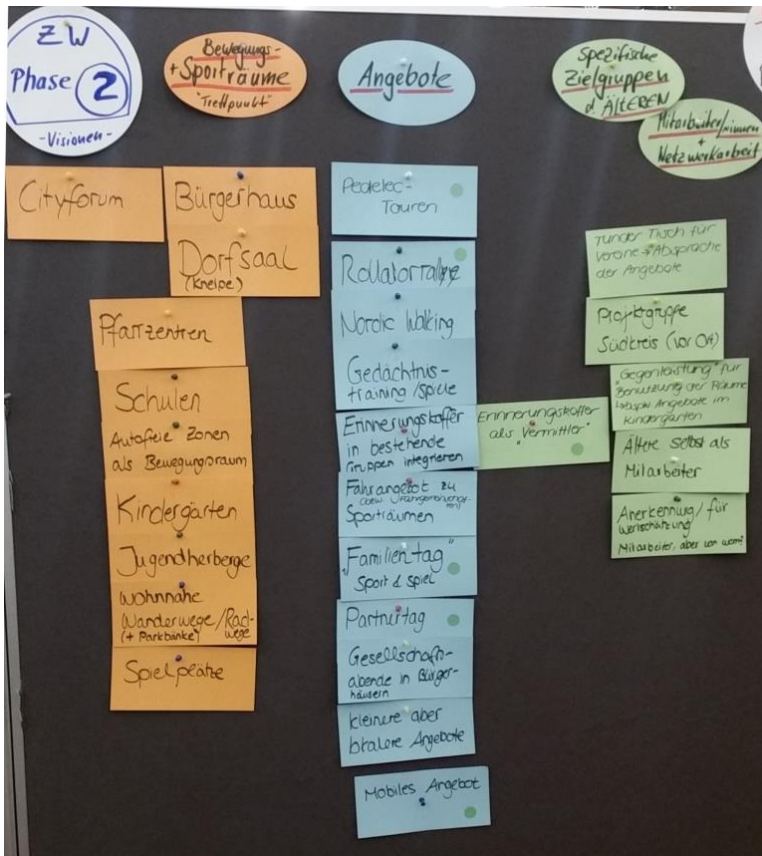 ZW
Phase 2
- Visionen -
Bewegungs-
+ Sporträume
"Treffpunkt"
Angebote
Spezifische
Zielgruppen
d. ÄLTEREN
Mitarbeiter/innen
+
Netzwerkarbeit
Cityforum
Bürgerhaus
Dorfsaal
(Kneipe)
Pfarrzentren
Schulen
Autofreie Zonen
als Bewegungsraum
Kindergärten
Jugendherberge
wohnnahe
Wanderwege/Rad-
(+ Parkbänke) wege
Spielplätze
Pedelec-
Touren
Rollatorrallye
Nordic Walking
Gedächtnis-
training/spiele
Erinnerungskoffer
in bestehende
Gruppen integrieren
Fahrangebot zu
Sporträumen
"Familientag"
Sport & Spiel
Partnertag
Gesellschafts-
abende in Bürger-
häusern
kleinere aber
lokalere Angebote
Mobiles Angebot
Erinnerungskoffer
als "Vermittler"
runder Tisch für
Vereine → Absprache
der Angebote
Projektgruppe
Südkreis (vor Ort)
"Gegenleistung" für
Benutzung der Räume
Angebote im
Kindergarten
Ältere selbst als
Mitarbeiter
Anerkennung/ für
Wertschätzung
Mitarbeiter, aber von wem?